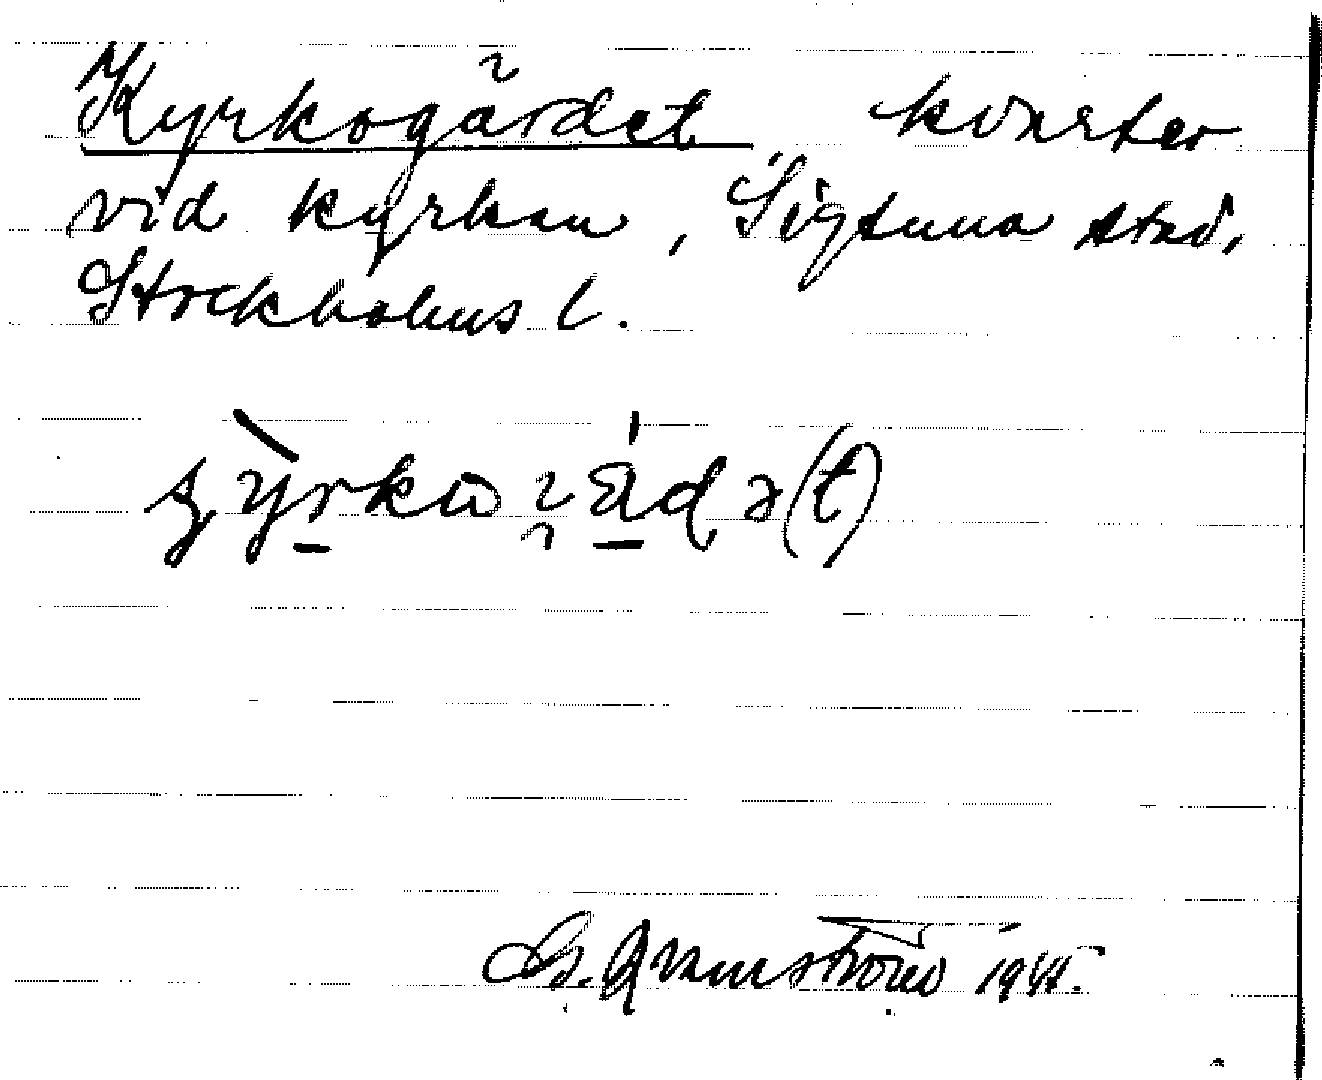 Kyrkogårdet kvarter
vid kyrkan, Sigtuna stad,
Stockholms l.
G. Qvarnström 1945.